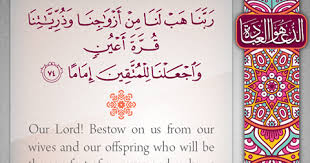 رَبَّنَا هَبْ لَنَا مِنْ أَزْوَاجِنَا وَذُرِّيَّاتِنَا
قُرَّةَ أَعْيُنٍ
وَاجْعَلْنَا لِلْمُتَّقِينَ إِمَامًا ﴿٧٤﴾
الدعاء هو العبادة
Our Lord! Bestow on us from our
wives and our offspring who will be